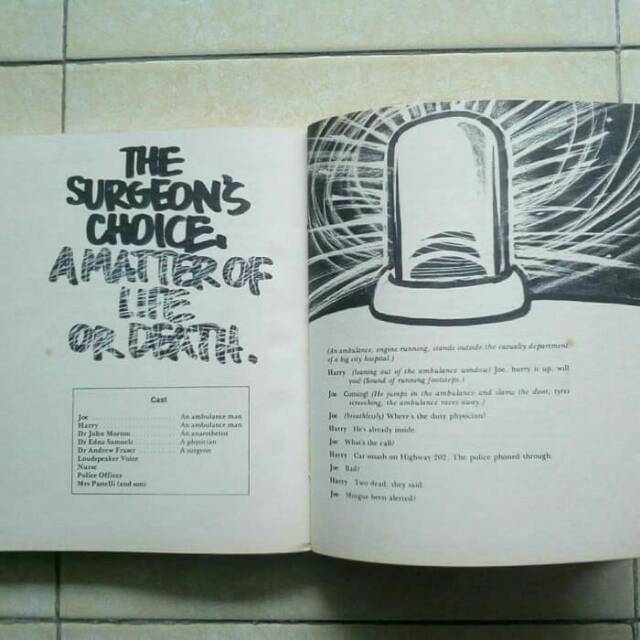 THE
SURGEON'S
CHOICE.
A MATTER OF
LIFE
OR DEATH.
Cast
Joe .......... An ambulance man
Harry .......... An ambulance man
Dr John Morton .......... An anaesthetist
Dr Edna Samuels .......... A physician
Dr Andrew Fraser .......... A surgeon
Loudspeaker Voice
Nurse
Police Officer
Mrs Panelli (and son)
(An ambulance, engine running, stands outside the casualty department
of a big city hospital.)
Harry (leaning out of the ambulance window) Joe, hurry it up, will
you! (Sound of running footsteps.)
Joe Coming! (He jumps in the ambulance and slams the door; tyres
screeching, the ambulance races away.)
Joe (breathlessly) Where's the duty physician?
Harry He's already inside.
Joe What's the call?
Harry Car smash on Highway 202. The police phoned through.
Joe Bad?
Harry Two dead, they said.
Joe Morgue been alerted?